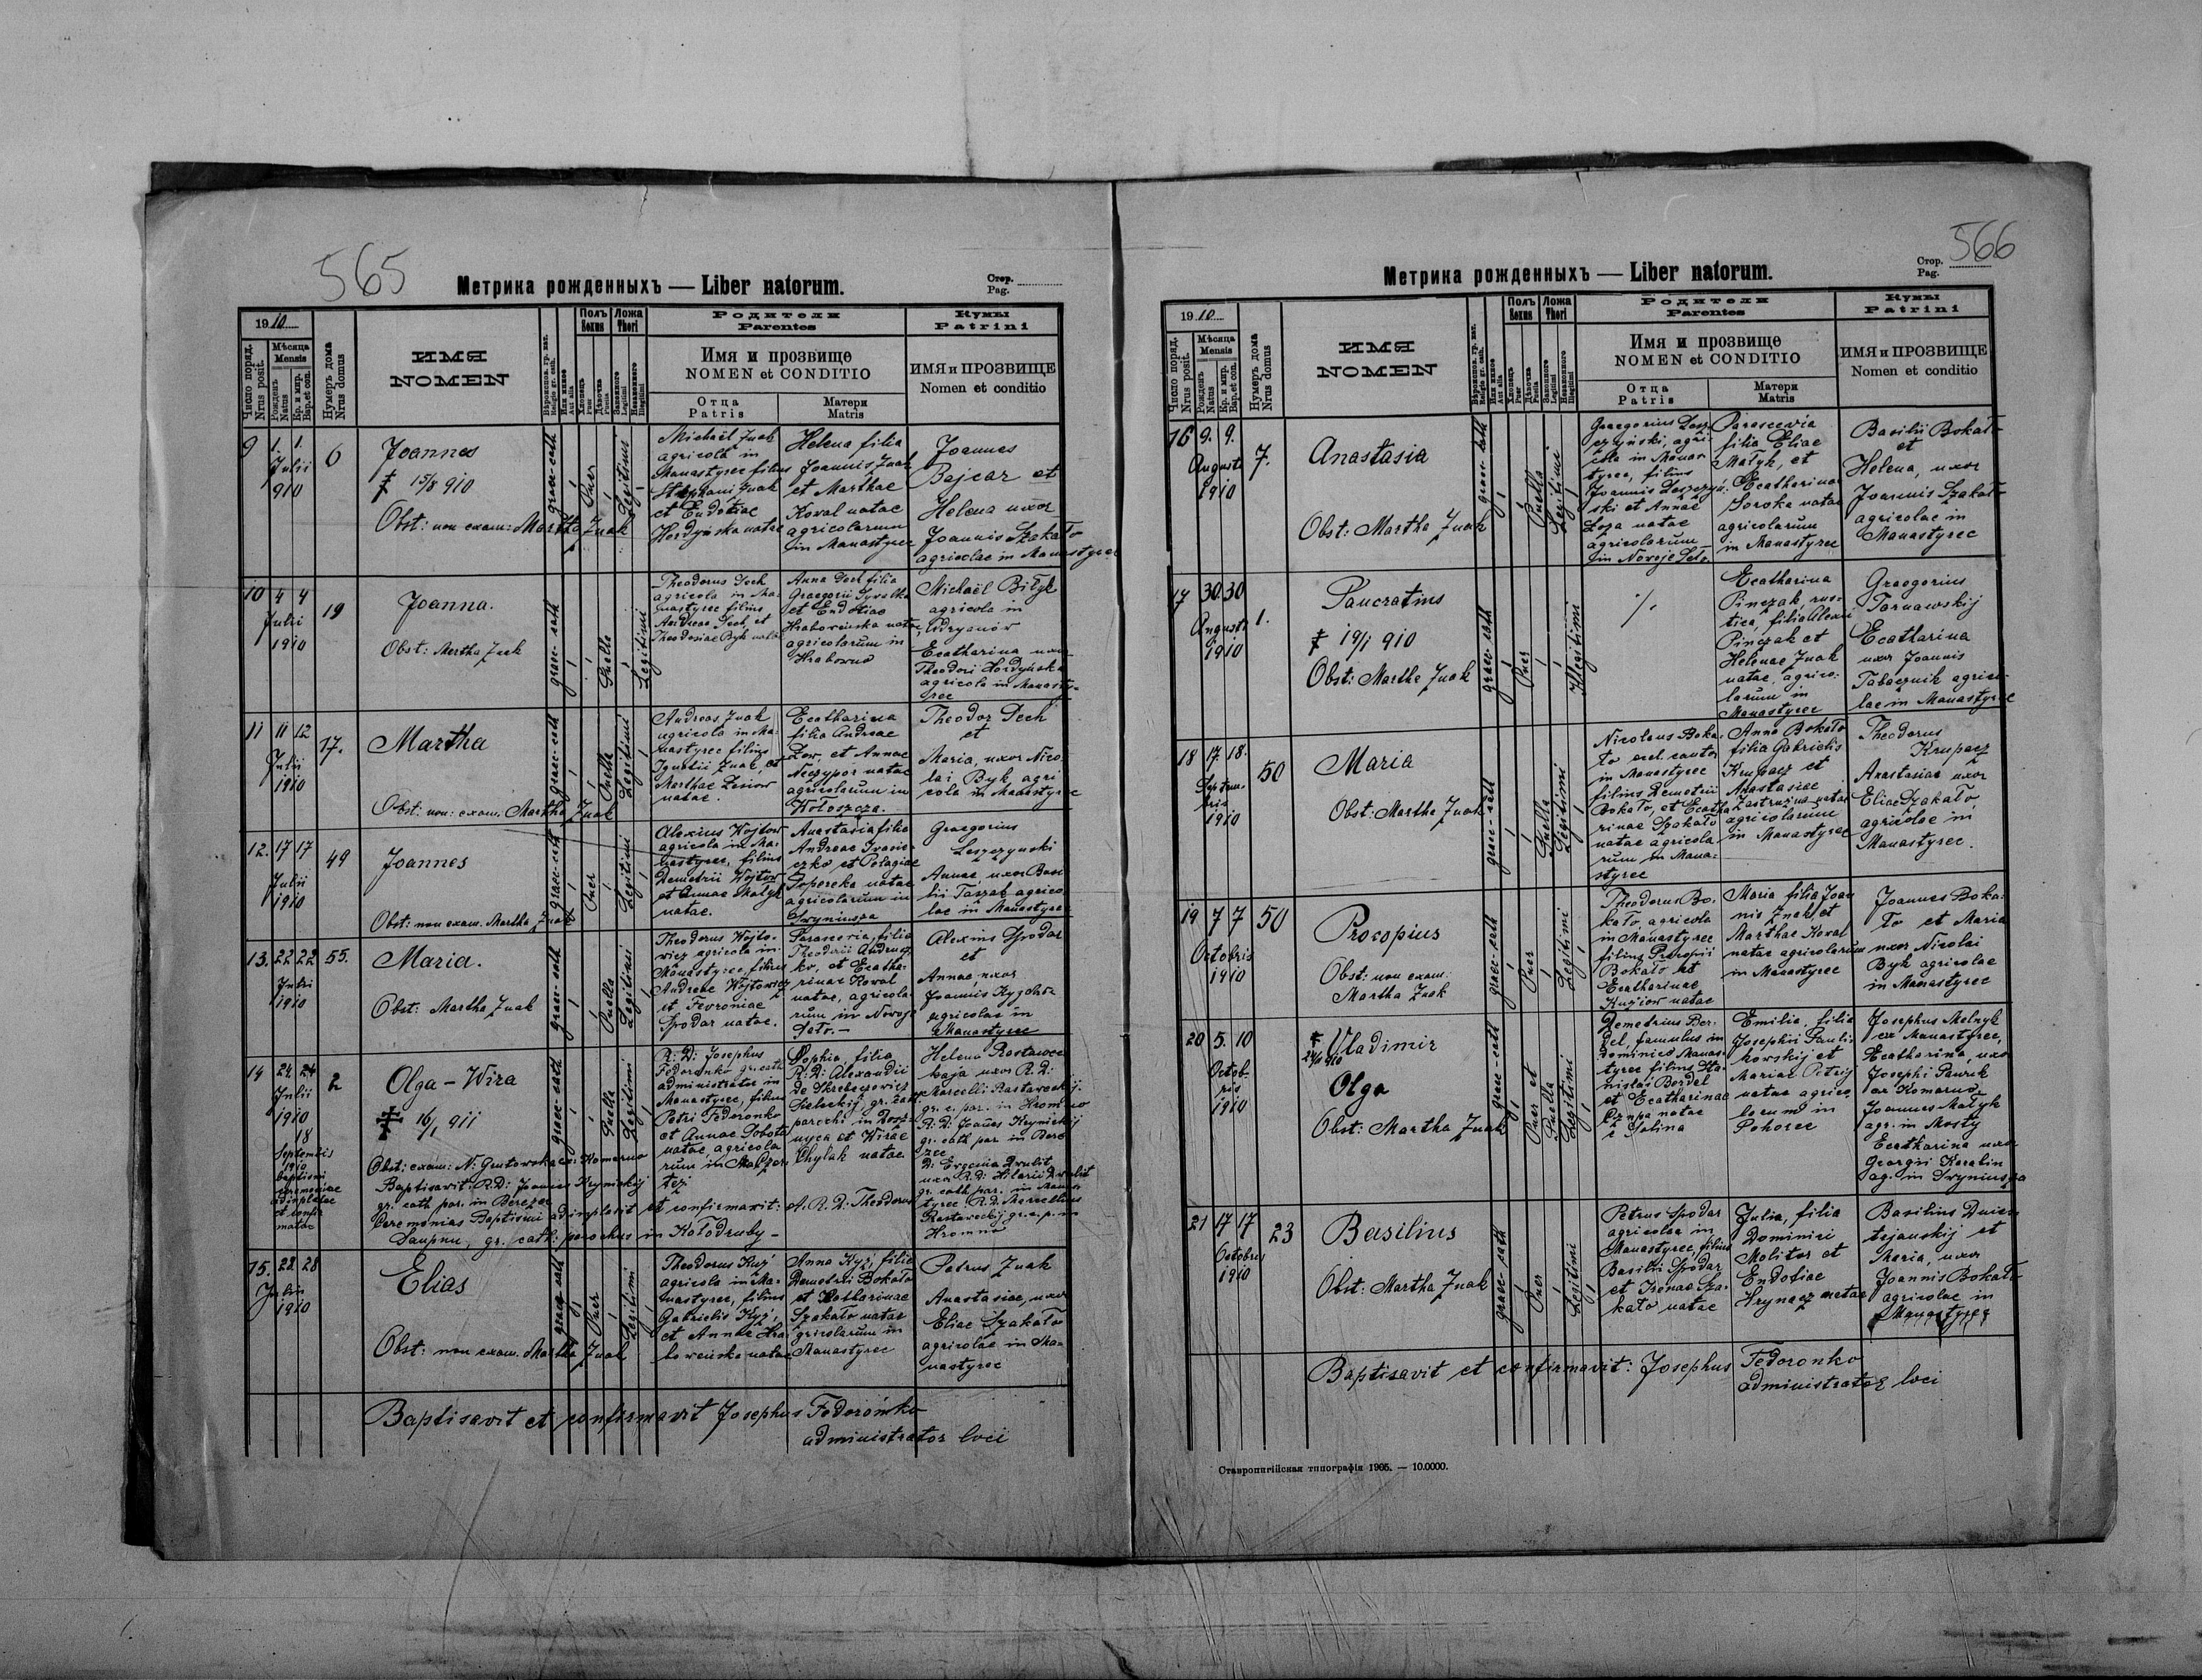 565
Метрика рожденныхъ — Liber natorum.
Стор.
Pag.
1910
Число поряд.
Nrus posit.
Мѣсяца
Mensis
Рожденъ
Natus
Кр. и мир.
Bap. et con.
Нумеръ дома
Nrus domus
ИМЯ
NOMEN
Полъ
Sexus
Ложа
Thori
Родители
Parentes
Имя и прозвище
NOMEN et CONDITIO
Отца
Patris
Матери
Matris
Кумы
Patrini
ИМЯ и ПРОЗВИЩЕ
Nomen et conditio
9
1. 1.
Julii
910
6
Joannes
15/8 910
Obst: non exam: Martha Znak
graec-cath
Puer
Legitimi
Michaël Znak
agricola in
Manastyrec filius
Stephani Znak
et Eudoxiae
Hordyńska natae
Helena filia
Joannis Znak
et Marthae
Koval natae
agricolarum
in Manastyrec
Joannes
Bejcar et
Helena uxor
Joannis Szakało
agricolae in Manastyrec
10
4 4
Julii
1910
19
Joanna.
Obst: Martha Znak
graec-cath
Puella
Legitimi
Theodorus Dech
agricola in Ma-
nastyrec filius
Andreae Dech, et
Theodosiae Byk natae
Anna Dech filia
et Eudoxiae
agricolarum in
Hrabowna
Michaël Biłyk
agricola in
Ecatharina uxor
Theodori Hordyńska
agricola in Manasty-
rec
11
11 12
Julii
1910
17.
Martha
Obst: non: exam. Martha Znak
graec-cath
Puella
Legitimi
Andreas Znak
agricola in Ma-
nastyrec filius
Ignatii Znak, et
Marthae Lesiow
natae.
Ecatharina
filia Andreae
et Annae
Neczypor natae
agricolarum in
Kołoszcza.
Theodor Dech
et
Maria, uxor Nico-
lai Byk, agri
cola in Manastyrec
12.
17 17
Julii
1910
49
Joannes
Obst: non exam. Martha Znak
graec-cath
Puer
Legitimi
Alexius Wojtow
agricola in Ma-
nastyrec, filius
Demetrii Wojtow
et Annae Małyk
natae.
Anastasia filia
Andreae
et Pelagiae
natae
agricolarum in
Dryniuszcza
Graegorius
Leszczynski
Annae uxor Basi-
lii agrico-
lae in Manastyrec
13.
22 22
Julii
1910
55.
Maria.
Obst: Martha Znak
graec-cath
Puella
Legitimi
Theodorus Wojto-
wicz agricola in
Manastyrec, filius
Andreae Wojtowicz
et Fevroniae
Spodar natae.
Parascevia, filia
Theodorii Andrusz
ko, et Ecatha-
rinae Kowal
natae, agricola-
rum in Novoje
Seło. —
Alexius Spodar
et
Annae, uxor
Joannis
agricolae in
Manastyrec
14
24 24
Julii
1910
18
Septembris
1910
baptismi
ceremoniae
adimpletae
et confir
matae
2
Olga – Wira
16/1 911
Obst: exam: N: Grutowska e: Komarno
Baptisavit R.D: Joannes Krynickij
gr. cath par. in Berezec
Ceremonias Baptismi adimplevit et confirmavit: A. R. D: Theodorus
gr: cath: parochus in Kołodruby –
graec-cath
Puella
Legitimi
R: D: Josephus
Fedoronko gr. cath
administrator in
Manastyrec, filius
Petri Fedoronko
et Annae Sobota
natae, agricola
rum in
Sophia, filia
R: D: Alexandri
parochi in
et Wirae
Chylak natae
Helena Rastawec
kaja uxor R. D:
Marcelli Rastaweckij
gr. c. par. in Hromno
R: D: Joannes Krynickij
gr. cath par in Bere
zec
D: Eugenia Drulit
uxor R. D: Hilarii Drulit
gr. cath. par. in Manas
tyrec R. D. Marcellus
Rastaweckij gr. c. p. in
Hromno
15.
28 28
Julii
1910
Elias
Obst: non exam. Martha Znak
graec-cath
Puer
Legitimi
Theodorus Kuź
agricola in Ma-
nastyrec, filius
Gabrielis Kyź,
et Annae Hra
boweńska natae
Anna Kyź, filia
Demetrii Bokało
et Katharinae
Szakało natae
gricolarum in
Manastyrec
Petrus Znak
Anastasiae, uxor
Eliae Szakało
agricolae in Ma-
nastyrec
Baptisavit et confirmavit Josephus Fedorońko
administrator loci
566
Метрика рожденныхъ — Liber natorum.
Стор.
Pag.
1910
Число поряд.
Nrus posit.
Мѣсяца
Mensis
Рожденъ
Natus
Кр. и мир.
Bap. et con.
Нумеръ дома
Nrus domus
ИМЯ
NOMEN
Полъ
Sexus
Ложа
Thori
Родители
Parentes
Имя и прозвище
NOMEN et CONDITIO
Отца
Patris
Матери
Matris
Кумы
Patrini
ИМЯ и ПРОЗВИЩЕ
Nomen et conditio
16
9. 9.
Augusti
1910
7.
Anastasia
Obst: Martha Znak
graec-cath
Puella
Legitimi
Graegorius Lesz
czyński, agri-
cola in Manas
tyrec, filius
Joannis Leszczyń-
ski et Annae
Łoza natae
agricolarum
in Novoje Seło
Parascevia
filia Eliae
Małyk, et
Ecatharinae
Soroka natae
agricolarum
in Manastyrec
Basilii Bokało
et
Helena, uxor
Joannis Szakało
agricolae in
Manastyrec
17
30 30
Augusti
1910
1.
Pancratius
19/1 910
Obst: Martha Znak
graec-cath
Puer
Illegitimi
%
Ecatharina
Pinczak, rus-
tica, filia Alexii
Pinczak et
Helenae Znak
natae, agrico-
larum in
Manastyrec
Graegorius
Tarnawskij
Ecatharina
uxor Joannis
Tabacznik agrico-
lae in Manastyrec
18
17. 18.
Septem-
bris
1910
50
Maria
Obst: Martha Znak
graec-cath
Puella
Legitimi
Nicolaus Boka-
ło eccl. cantor
in Manastyrec
filius Demetrii
Bokało, et Ecatha
rinae Szakało
natae agricola-
rum in Mana-
styrec
Anna Bokało
filia Gabrielis
Krupacz et
Anastasiae
natae
agricolarum
in Manastyrec
Theodorus
Krupacz
Anastasiae uxor
Eliae Szakało,
agricolae in
Manastyrec.
19
7 7
Octobris
1910
50
Procopius
Obst: non exam:
Martha Znak
graec-cath
Puer
Legitimi
Theodorus Bo-
kało, agricola
in Manastyrec
filius Procopii
Bokało et
Ecatharinae
Kuźiow natae
Maria filia Joan
nis Znak, et
Marthae Koval
natae agricolarum
in Manastyrec
Joannes Boka-
ło et Maria
uxor Nicolai
Byk agricolae
in Manastyrec
20
5. 10
Octob-
ris
1910
Vladimir
Olga
Obst: Martha Znak
graec-cath
Puer et
Puella
Legitimi
Demetrius Ber-
del, famulus in
dominico Manas-
tyrec filius Sta-
nislai Berdel
et Ecatharinae
natae
Emilia, filia
Josephi Pauli-
kowskij et
Mariae Petrij
natae agrico
larum in
Pohorec
Josephus Melnyk
ex Manastyrec,
Ecatharina, uxor
Josephi
ex Komarno
Joannes Małyk
agr. in Mosty
Ecatharina uxor
Georgii Karalin
ag. in Dryniuszcza
21
17 17
Octobris
1910
23
Basilius
Obst: Martha Znak
graec-cath
Puer
Legitimi
Petrus Spodar
agricolae in
Manastyrec, filius
Basilii Spodar
et Irenae Sza-
kało natae
Julia, filia
Dominici
Molitor et
Eudoxiae
Hrynacz natae
Basilius Dnies-
trjanskij et
Maria, uxor
Joannis Bokało
agricolae in
Manastyrec
Baptisavit et confirmavit: Josephus Fedoronko
administrator loci
Ставропигійская типографія 1905. — 10.0000.